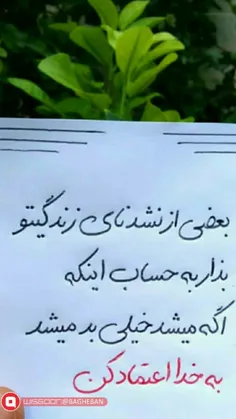 بعضی از نشدنای زندگیتو
بذار به حساب اینکه
اگه میشد خیلی بد میشد
به خدا اعتماد کن
wisgoon@BAGHEBAN_